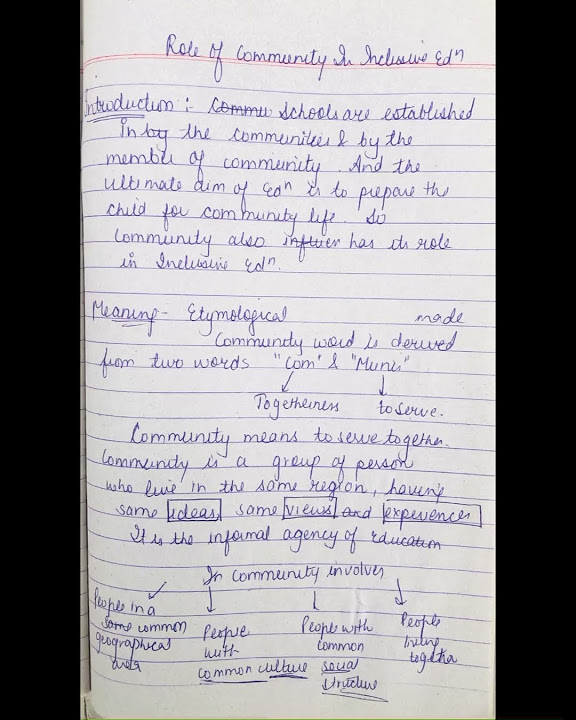 Role of Community In Inclusive Edⁿ
Introduction :- Commu Schools are established
in by the communities & by the
member of community. And the
ultimate aim of Edⁿ is to prepare the
child for community life. So
community also influen has its role
in Inclusive Edⁿ.
Meaning - Etymological made
Community word is derived
from two words "Com" & "Munis"
Togetherness to serve.
Community means to serve together.
Community is a group of person
who live in the same region, having
same ideas same views and experiences
It is the informal agency of education
In community involves
People in a
same common
geographical
area
People
with
common culture
People with
common
social
structure
People
living
together